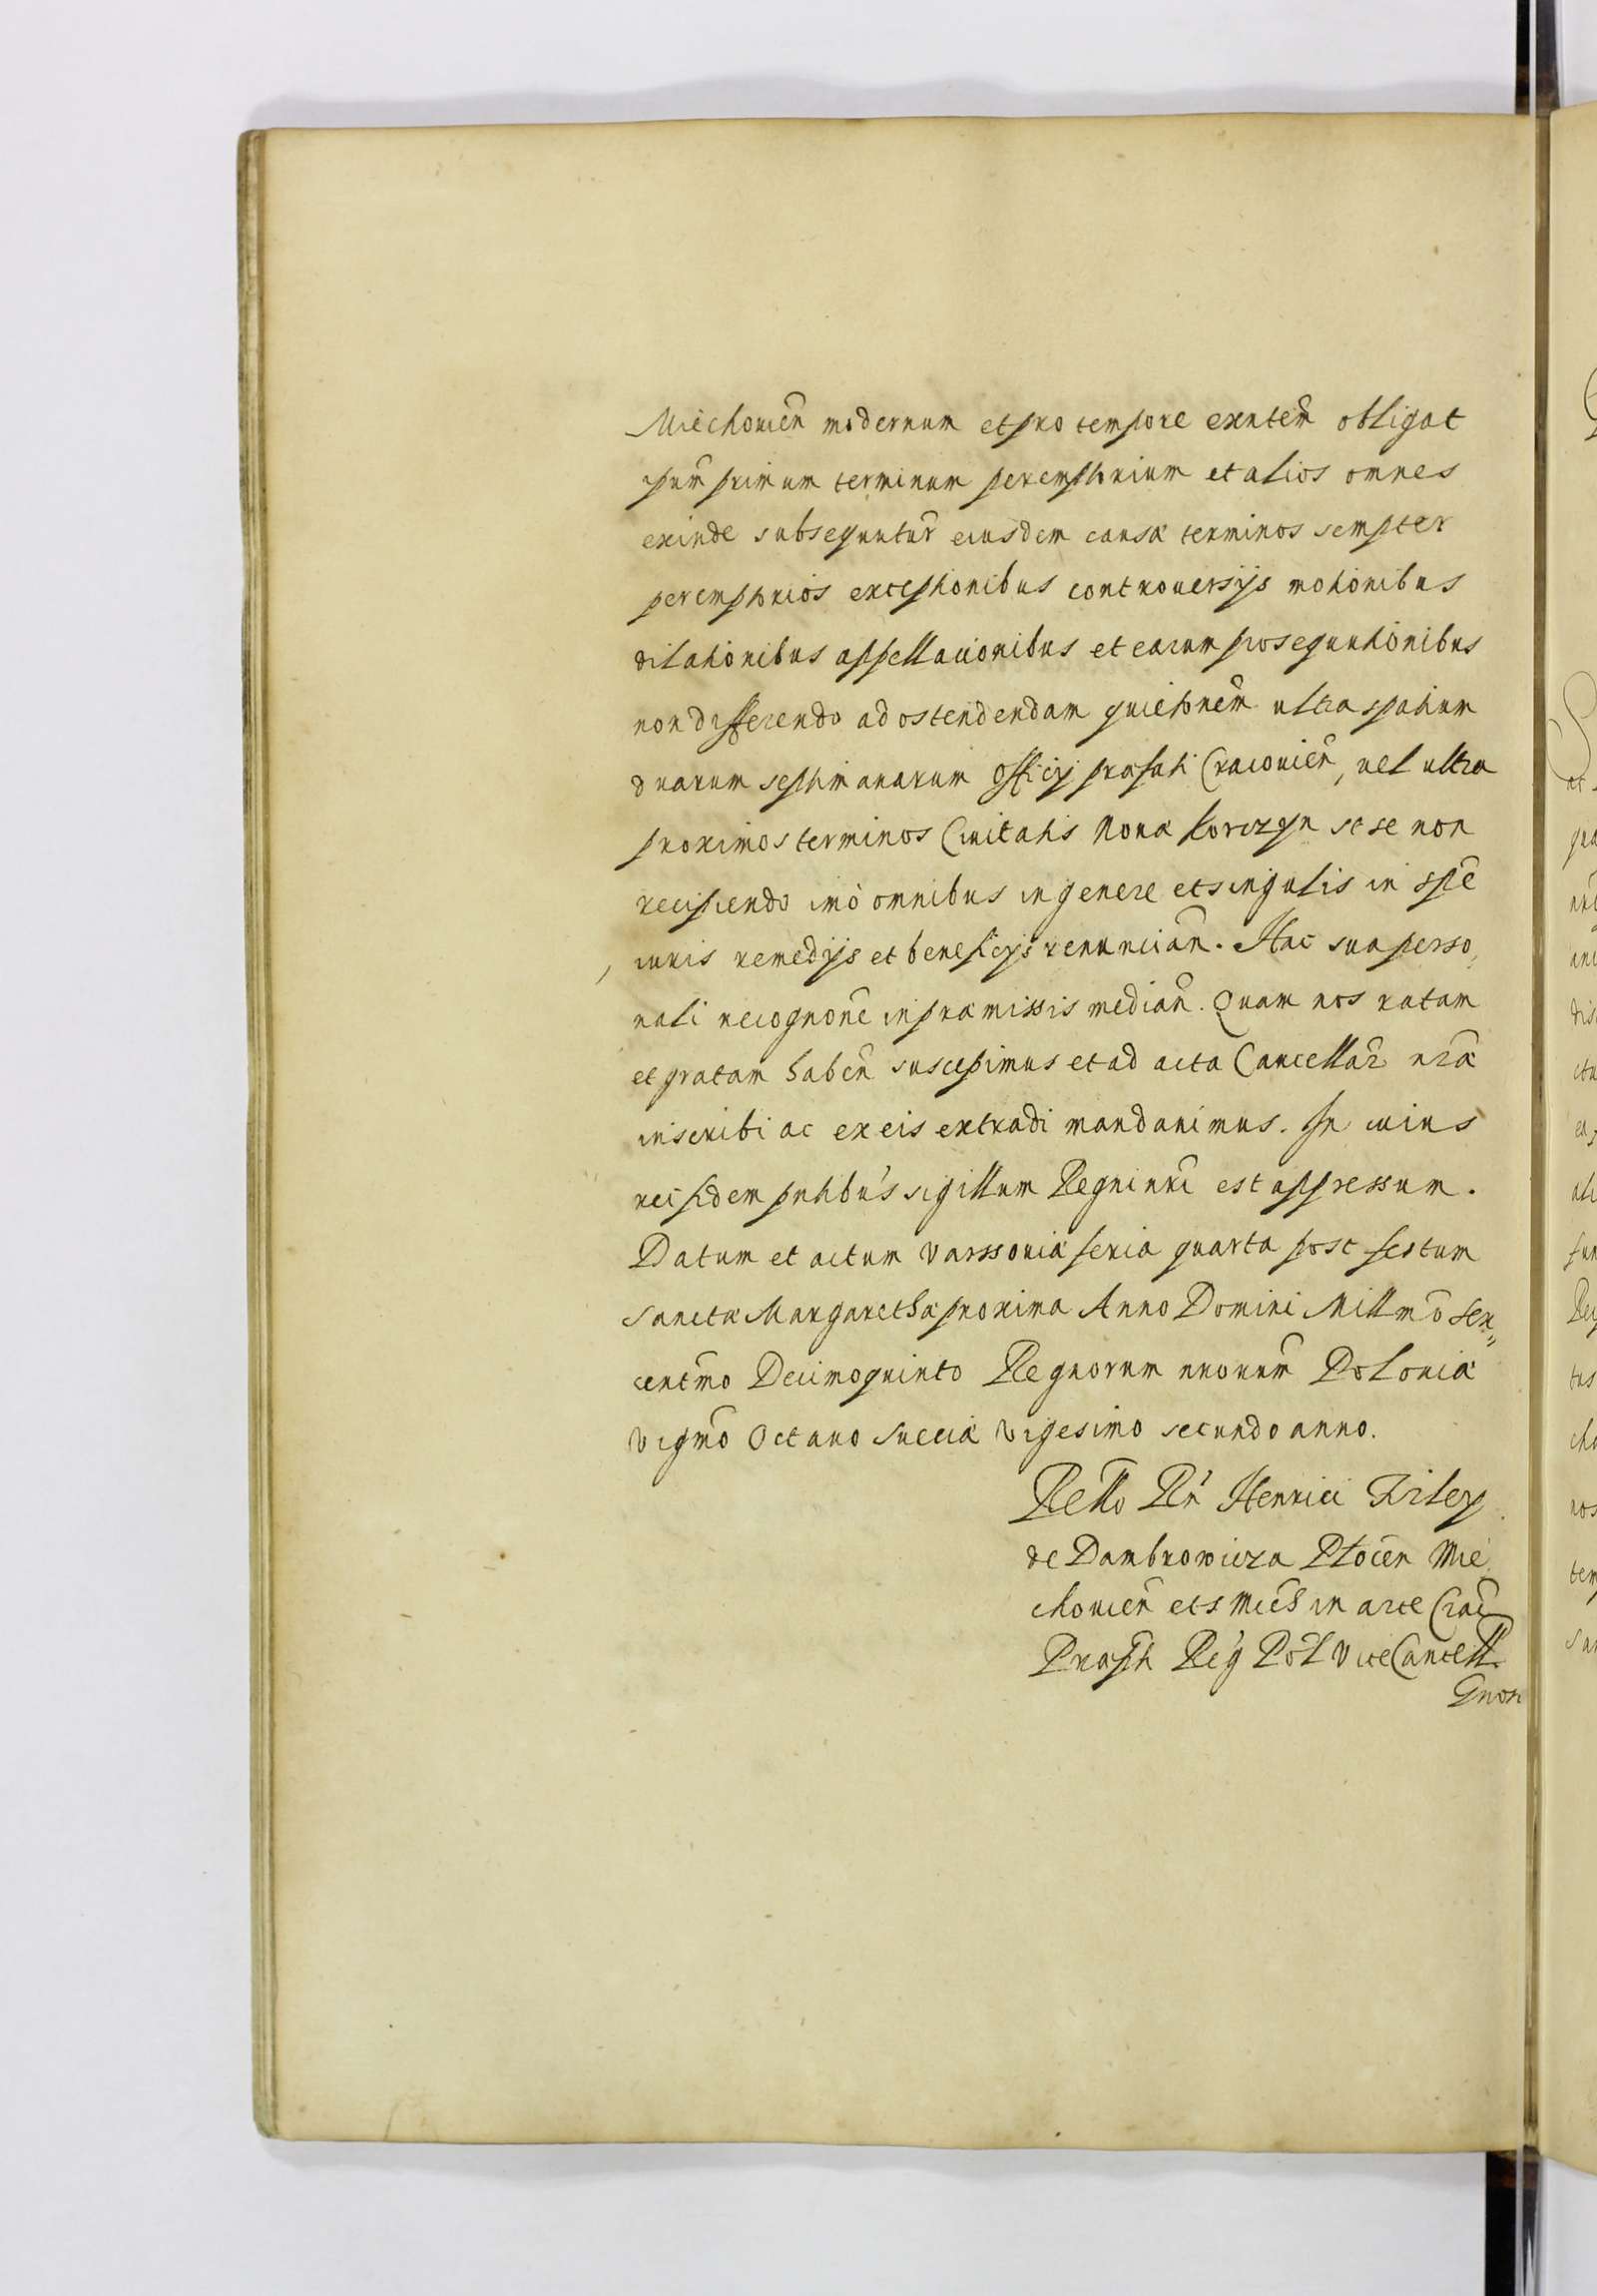 Miechouien̄ modernum et pro tempore exn̄tem̄ obligat
ipsum̄ primum terminum peremptorium et alios omnes
exinde subsequutur̄ eiusdem causæ terminos sempter
peremptorios exceptionibus controuersijs motionibus
dilationibus appellationibus et earum prosequutionibus
non differendo ad ostendendam quietionem̄ ultra spatium
duarum septimanarum Officij præfati Cracouien̄, uel ultra
proximos terminos Ciuitatis Nouæ Korczyn sese non
recipiendo imò omnibus in genere et singulis in spē
iuris remedijs et beneficijs renuncian̄. Hac sua perso,
nali recognoñe in præmissis median̄. Quam nos ratam
et gratam haben̄ suscepimus et ad acta Cancellar̄ nr̄æ
inscribi ac ex eis extradi mandauimus. In cuius
rei fidem pn̄tibus sigillum Regni nri̅ est appressum.
Datum et actum Varssouiæ feria quarta post festum
Sanctæ Margarethæ proxima Anno Domini Millmō Sex„
centmo Decimoquinto Regnorum nrorum̄ Poloniæ
Vigmō Octauo Sueciæ Vigesimo secundo anno.
Rello Rn̄ Henrici Firley
de Dambrowicza Plocen̄ Mie
chouien̄ et S Mich̄ in arce Crac̄
Præpti Reg̅ Pol̄ ViceCancell
Gnosi